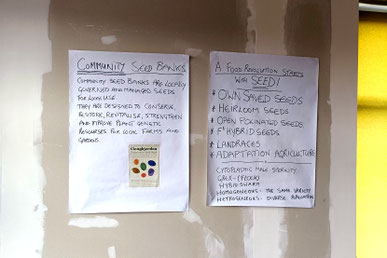 COMMUNITY SEED BANKS
COMMUNITY SEED BANKS ARE LOCALLY
GOVERNED AND MANAGED SEEDS
FOR LOCAL USE
THEY ARE DESIGNED TO CONSERVE,
RESTORE, REVITALISE, STRENGTHEN
AND IMPROVE PLANT GENETIC
RESOURSES FOR LOCAL FARMS AND
GARDENS.
Cloughjordan
A FOOD REVOLUTION STARTS
WITH SEED!
* OWN SAVED SEEDS
* HEIRLOOM SEEDS
* OPEN POLINATED SEEDS
* F1 HYBRID SEEDS
* LANDRACES
* ADAPTATION AGRICULTURE
CYTOPLASTIC MALE STERILITY
GREX - (FLOCK)
HYBRID SWARM
HOMOGENEOUS - THE SAME VARIETY
HETROGENEOUS - DIVERSE